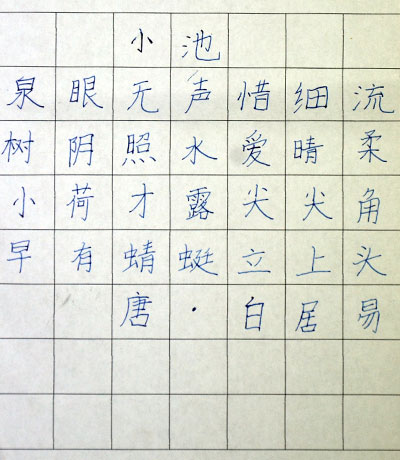 小池
泉眼无声惜细流
树阴照水爱晴柔
小荷才露尖尖角
早有蜻蜓立上头
唐·白居易